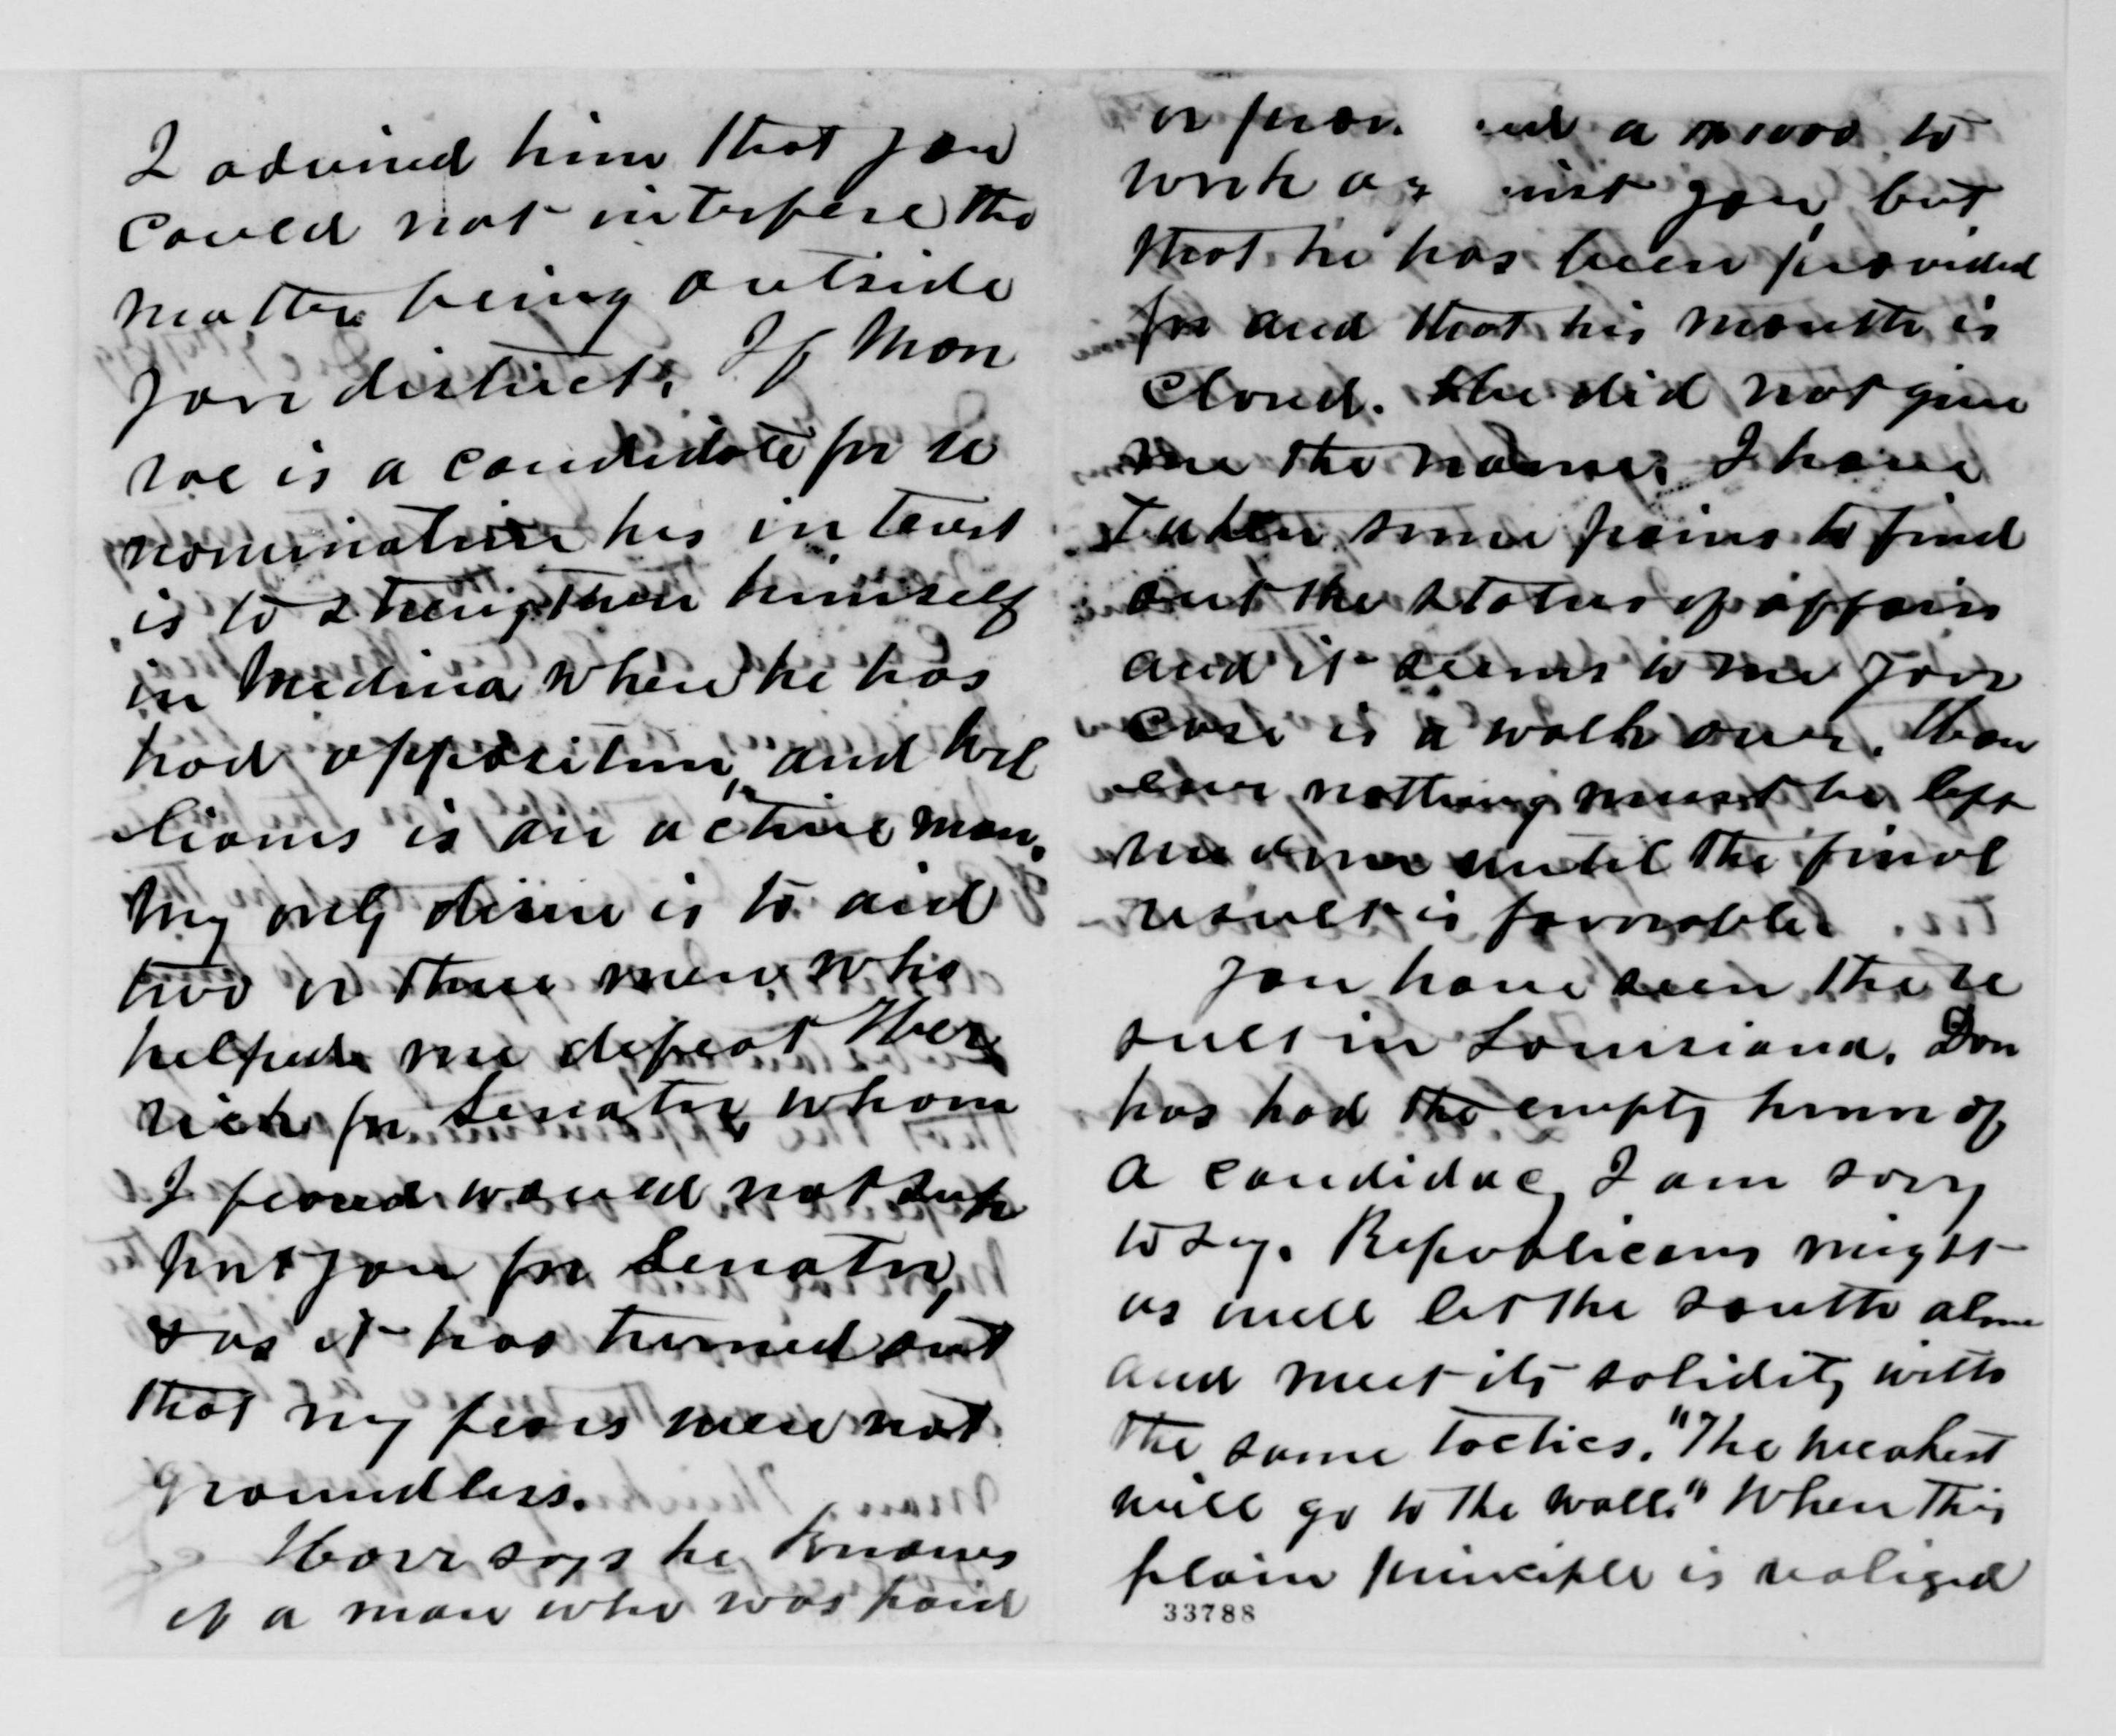 I advised him that you
could not interfere the
matter being outside
your district. If Mon
roe is a candidate for re
nomination his interest
is to strengthen himself
in Medina where he has
had opposition, and Wil
liams is an active man.
My only desire is to aid
two or three men who
helped me defeat Her
rick for Senator whom
I feared would not sup
port you for Senator,
& as it has turned out
that my fears were not
groundless.
Horr says he knows
of a man who was paid
or prom ed a $1000 to
work ag inst you but
that he has been provided
for and that his mouth is
closed. He did not give
me the name. I have
taken some pains to find
out the status of affairs
and it seems to me your
case is a walk over. How
ever nothing must be left
undone until the final
result is favorable.
You have seen the re
sult in Louisiana. Don
has had the empty honor of
a candidacy I am sorry
to say. Republicans might
as well let the south alone
and meet its solidity with
the same tactics. "The weakest
will go to the wall." When this
plain principle is realized
33788